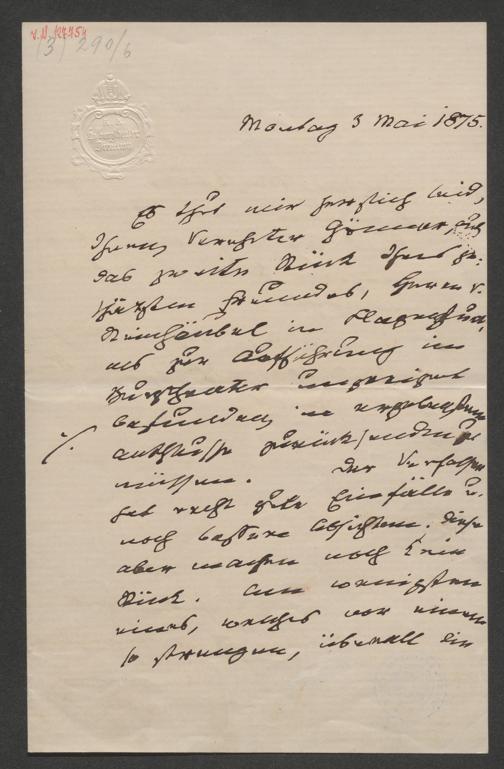 I.N. 127754
(3) 290/6
Montag 3 Mai 1875.
Es thut mir herzlich leid,
Ihnen, Verehrter Gönner, auch
das zweite Stück Ihres ge-
schätzten Freundes, Herrn v.
in Klagenfurt,
als zur Aufführung im
Burgtheater ungeeignet
befunden, in ergebenstem
Anschlusse zurücksenden zu
müssen. Der Verfasser
hat recht gute Einfälle u.
noch bessere Absichten. Diese
aber machen noch kein
Stück. Am wenigsten
eines, welches vor einem
so strengen, überall ein